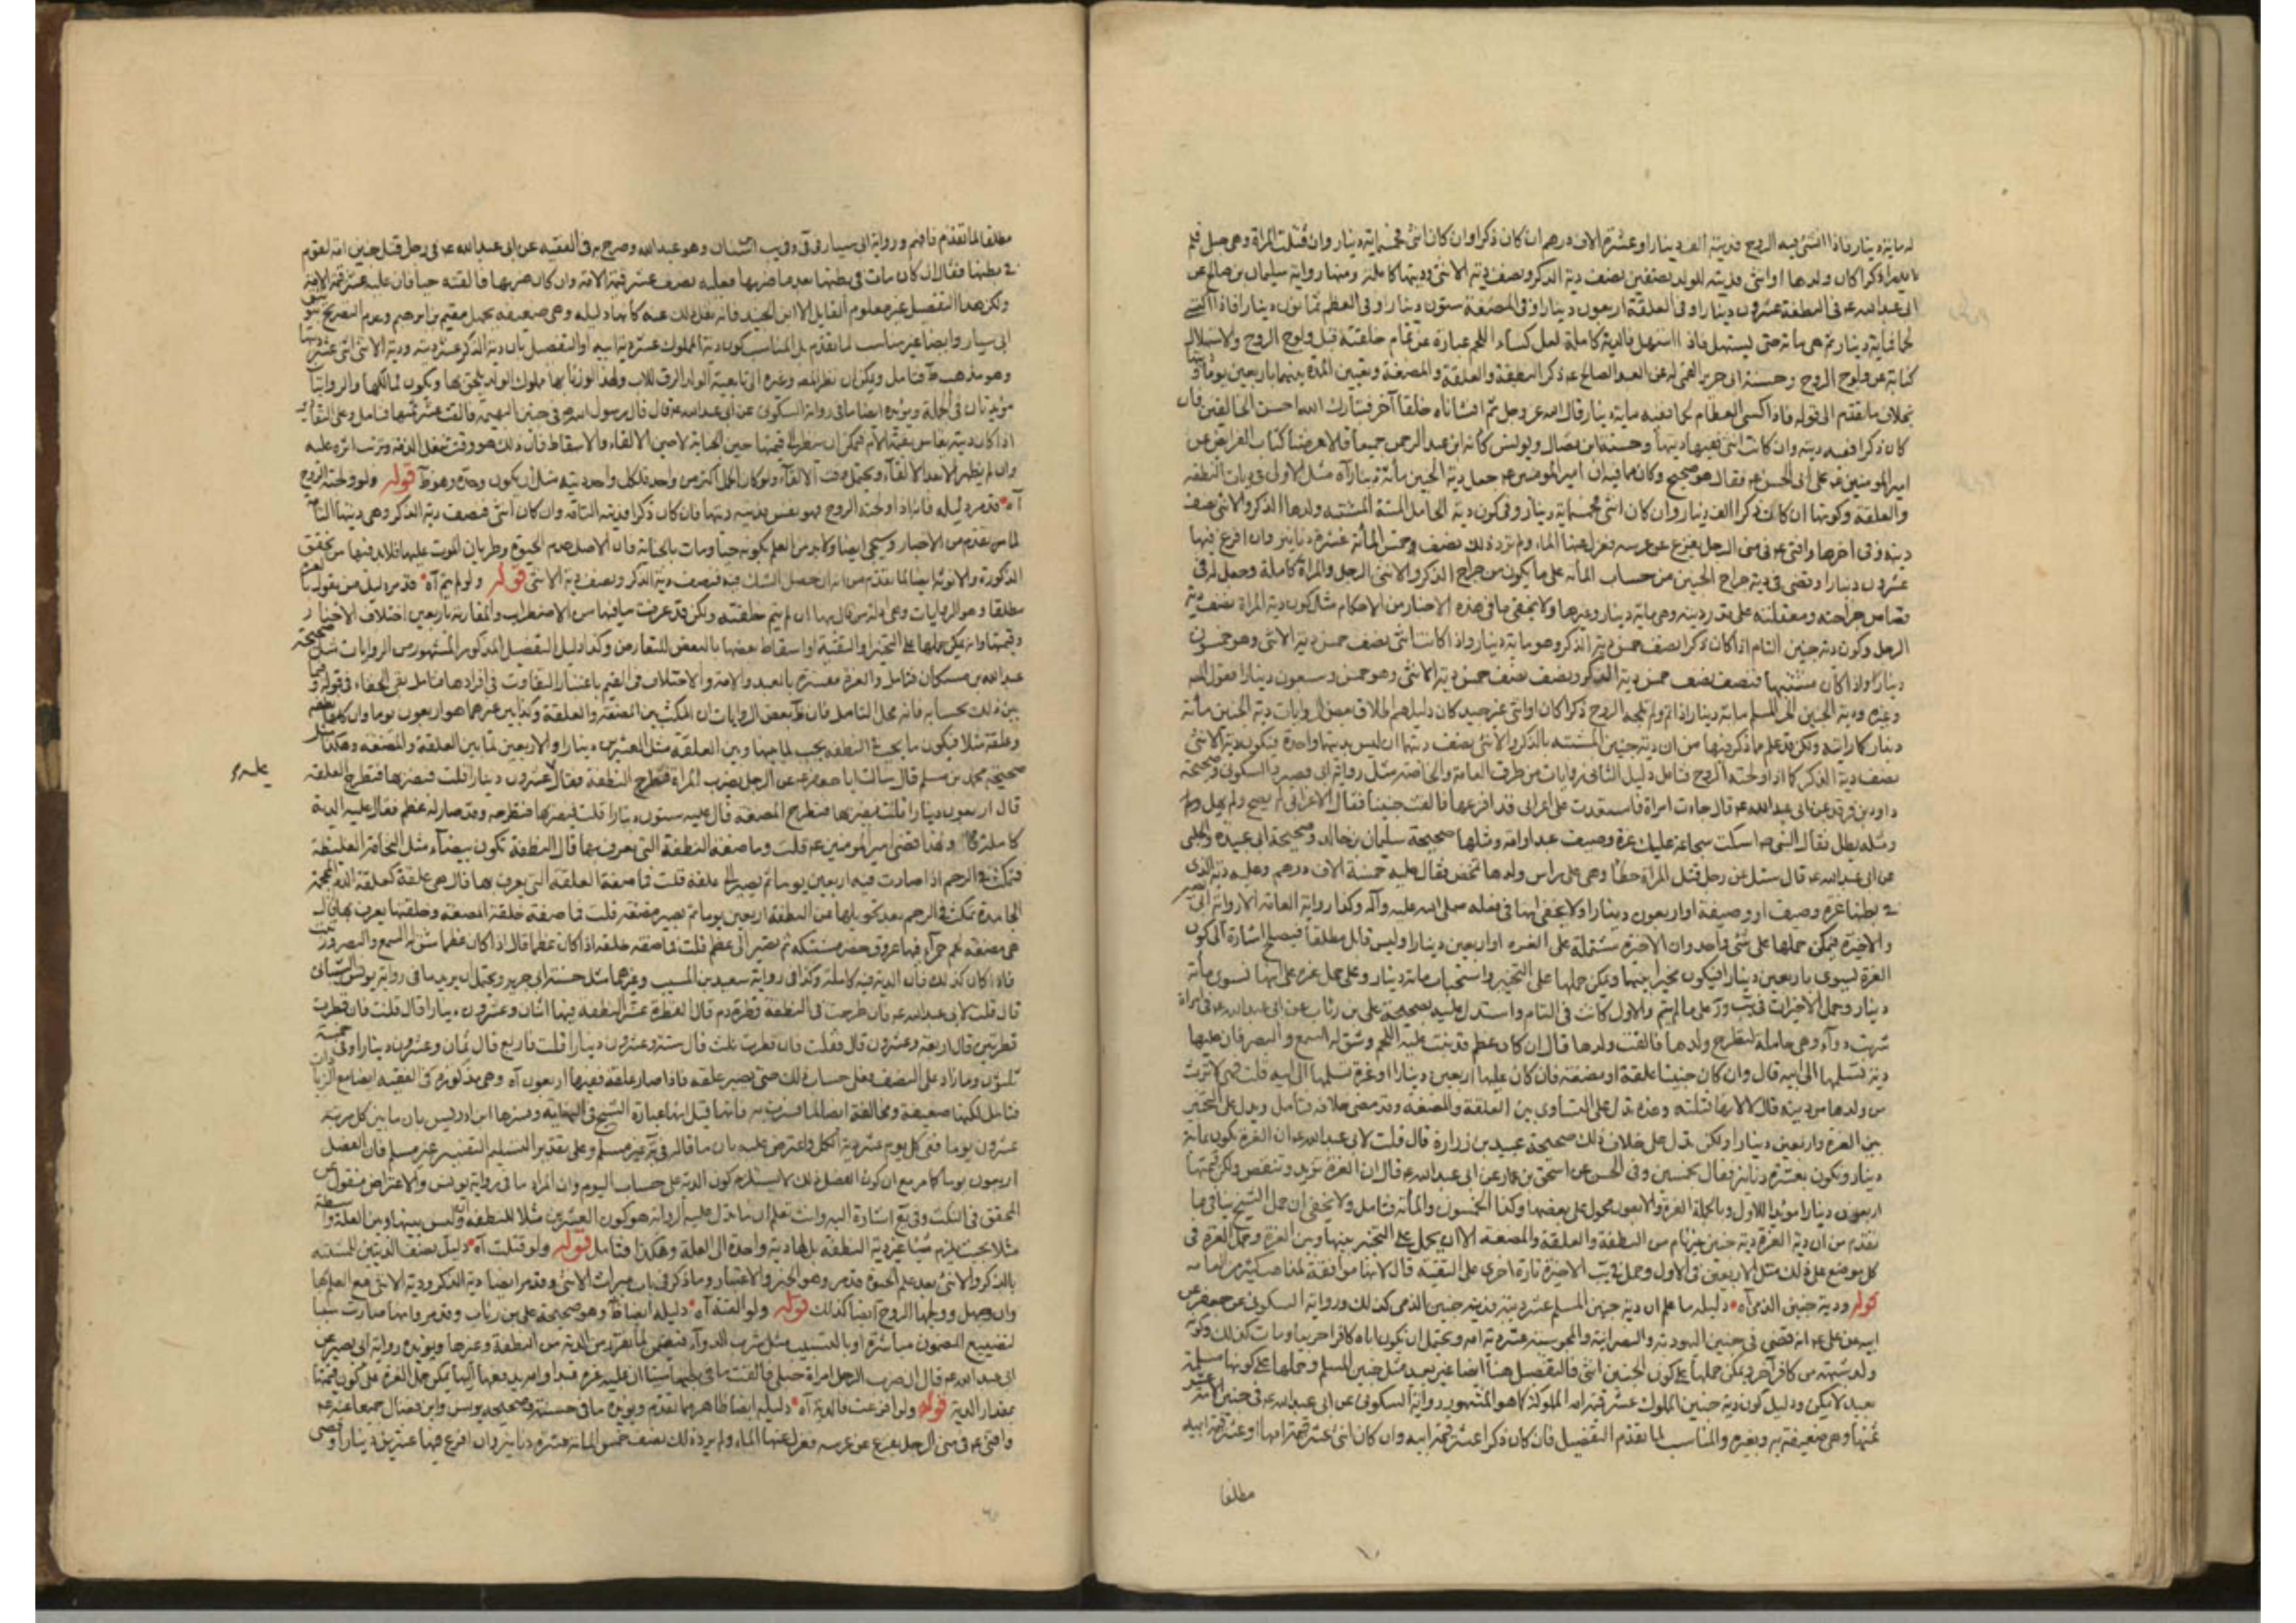 له مائة دينار فاذا انشئ فيه الروح فديته الف دينار او عشرة الاف درهم ان كان ذكرا وان كان انثى فخمسمائة دينار وان قتلت المراة وهي حبلى فلم
اذكرا كان ولدها او انثى فديته للولد نصفين نصف دية الذكر ونصف دية الانثى وديتها كاملة ومنها رواية سليمان بن صالح عن
ابى عبد الله ع في النطفة عشرون دينارا وفى العلقة اربعون دينارا وفى المضغة ستون دينارا وفى العظم ثمانون دينارا فاذا اكتسى
لحما فمائة دينار ثم هي مائة حتى يستهل فاذا استهل فالدية كاملة لعل كساء اللحم عبارة عن تمام خلقته قبل ولوج الروح والاستهلال
كناية عن ولوج الروح وحسنة ابى جرير القمي عن العبد الصالح ع ذكر النطفة والعلقة والمضغة وتعيين المدة بينهما باربعين يوما
بخلاف ما تقدم الى قوله فاذا اكتسى العظام لحما ففيه مائة دينار قال الله عز وجل ثم انشاناه خلقا آخر فتبارك الله احسن الخالقين فان
كان ذكرا ففيه دية وان كانت انثى ففيها ديتها وحسنة ابن فضال ويونس كانه ابن عبد الرحمن جميعا قالا عرضنا كتاب الفرائض عن
امير المومنين ع على ابى الحسن ع فقال هو صحيح وكان مما فيه ان امير المومنين ع جعل دية الجنين مائة دينار آه مثل الاولى في ديات النطفة
والعلقة وكونها ان كانت ذكرا الف دينار وان كان انثى خمسمائة دينار وفى كون دية الحامل الميتة المشتبه ولدها الذكر والانثى نصف
دية وفى اخرها وافتى ع في منى الرجل يفزع عن عرسه فعزل عنها الماء ولم ترد ذلك نصف خمس المائة عشرة دنانير وان افرغ فيها
عشرون دينارا وقضى في دية جراح الجنين من حساب المائة على ما يكون من جراح الذكر والانثى الرجل والمراة كاملة وجعل له في
قصاص جراحته ومعقلته على قدر ديته وهي مائة دينار وغيرها ولا يخفى ما في هذه الاخبار من الاحكام مثل كون دية المراة نصف دية
الرجل وكون دية جنين التام اذا كان ذكرا نصف خمس دية الذكر وهو مائة دينار واذا كانت انثى نصف خمس دية الانثى وهو خمسون
دينارا واذا كان مشتبها فنصف نصف خمس دية الذكر ونصف نصف خمس دية الانثى وهو خمس وسبعون دينارا فقول المص
وغيره ودية الجنين الحر المسلم مائة دينار اذا تم ولم تلجه الروح ذكرا كان او انثى غير جيد كان دليلهم اطلاق بعض الروايات دية الجنين مائة
دينار كما رايته ولكن قد علم ما ذكر فيها من ان دية جنين المشتبه بالذكر والانثى نصف ديتها ان ليس ديتها واحدة فتكون دية الانثى
نصف دية الذكر كما اذا ولجته الروح فتامل دليل الثانى روايات من طرف العامة والخاصة مثل رواية ابى بصير والسكونى وصحيحة
داود بن فرقد عن ابى عبد الله ع قال جاءت امراة فاستعدت على اعرابى قد افزعها فالقت جنينا فقال الاعرابى لم يصح ولم يهل
ومثله يطل فقال النبي ص اسكت سجاعة عليك غرة وصيف عبد او امة ومثلها صحيحة سليمان بن خالد وصحيحة ابى عبيدة والحلبى
عن ابى عبد الله ع قال سئل عن رجل قتل المراة خطأ وهي على راس ولدها تمخض فقال عليه خمسة الاف درهم وعليه دية الذى
في بطنها غرة وصيف او وصيفة او اربعون دينارا ولا يخفى
والاخيرة فيمكن حملها على شئ واحد وان الاخيرة مشتملة على الغرة او اربعين دينارا وليس قابل مطلقا فيصلح اشارة الى كون
الغرة تسوى باربعين دينارا فيكون مخيرا بينهما ويمكن حملها على التخيير واستحباب مائة دينار وعلى حمل غرة على انها تسوى مائة
دينار وحمل الاخيرات في يب وز على ما لم يتم والاول كانت في التام واستدل عليه بصحيحة على بن رئاب عن ابى عبد الله ع في امراة
شربت دواء وهي حاملة لتطرح ولدها فالقت ولدها قال ان كان عظم قد نبت عليه اللحم وشق له السمع والبصر فان عليها
دية تسلمها الى ابيه قال وان كان جنينا علقة او مضغة فان كان عليها اربعين دينارا او غرة تسلمها الى ابيه قلت فهي لا ترث
من ولدها من ديته قال لا لانها قتلته وهذه تدل على التساوى بين العلقة والمضغة وقد مضى خلافه فتامل ويدل على التخيير
بين الغرة واربعين دينارا ولكن تدل على خلاف ذلك صحيحة عبيد بن زرارة قال قلت لابى عبد الله ع ان الغرة تكون بمائة
دينار وتكون بعشرة دنانير فقال بخمسين وفى الحسن عن اسحق بن عمار عن ابى عبد الله ع قال ان الغرة تزيد وتنقص ولكن قيمتها
اربعون دينارا مؤيد للاول وبالجملة الغرة والاربعون محمول على بعضها وكذا الخمسون والمائة فتامل ولا يخفى ان حمل الشيخ ينافى ما
تقدم من ان دية الغرة دية جنين غير تام من النطفة والعلقة والمضغة الا ان يحمل على التخيير بينها وبين الغرة وحمل الغرة في
كل موضع على ذلك مثل الاربعين في الاول وحمل في يب الاخيرة تارة اخرى على التقية قال لانها موافقة لمذاهب كثير من العامة
قوله ودية جنين الذمى آه دليله ما علم ان دية جنين المسلم عشر دية فدية جنين الذمى كذلك ورواية السكونى عن جعفر عن
ابيه عن على ع انه قضى في جنين اليهودية والنصرانية والمجوسية عشر دية امه ويحتمل ان يكون اباه كافرا حربيا ومات كذلك وكونه
ولد شبهة من كافر آخر ويمكن حملها على كون الجنين انثى فالتفصيل هنا ايضا غير بعيد مثل جنين المسلم وحملها على كونها مسلمة
بعيد لا يمكن ودليل كون دية جنين المملوك عشر قيمة امه المملوكة كما هو المشهور رواية السكونى عن ابى عبد الله ع في جنين الامة عشر
ثمنها وهي ضعيفة به وبغيره والمناسب لما تقدم التفصيل فان كان ذكرا عشر قيمة ابيه وان كان انثى عشر قيمة امها او عشر قيمة ابيه
مطلقا
مطلقا لما تقدم فافهم ورواية ابى سيار في في وفى يب ابن سنان وهو عبد الله وصرح به في الفقيه عن ابى عبد الله ع في رجل قتل جنين امة لقوم
في بطنها فقال ان كان مات في بطنها بعد ما ضربها فعليه نصف عشر قيمة الامة وان كان ضربها فالقته حيا فان عليه عشر قيمة الامة
ولكن هذا التفصيل غير معلوم القايل الا ابن الجنيد فانه نقل ذلك عنه كانها دليله وهي ضعيفة بجهل نعيم بن ابراهيم وعدم التصريح بتوثيق
ابى سيار وايضا غير مناسب لما تقدم بل المناسب كون دية المملوك عشر دية ابيه او التفصيل بان دية الذكر عشر دية ودية الانثى
وهو مذهب ط فتامل ويمكن ان نظر المص وغيره الى تابعية الولد الرق للاب ولهذا لو زنا بها مملوك الولد يلحق بها ويكون لمالكها والروايتان
مؤيدتان في الجملة ويؤيده ايضا ما في رواية السكونى عن ابى عبد الله ع قال قال رسول الله ص في جنين البهيمة فالقت عشر ثمنها فتامل وعلى
اذا كان دية يقاس بقيمة الام فيمكن ان ينظر الى قيمتها حين الجناية لا حين الالقاء والاسقاط فان ذلك هو وقت شغل الذمة وترتب اثره عليه
وان لم يظهر الا بعد الالقاء ويحتمل وقت الالقاء ولو كان الحمل اكثر من واحد فلكل واحد دية مثل ان يكون وحده وهو ظ قوله ولو ولجته الروح
آه قد مر دليله فانه اذا ولجته الروح فهو نفس فديته ديتها فان كان ذكرا فدية التامة وان كان انثى فنصف دية الذكر وهي ديتها التامة
لما تقدم من الاخبار وسيجئ ايضا ولابد من العلم بكونه حيا ومات بالجناية فان الاصل عدم الحيوة وطريان الموت عليها فلابد فيها من تحقق
الذكورة والانوثة ايضا لما تقدم من انه ان حصل الشك فيه فنصف دية الذكر ونصف دية الانثى قوله ولو لم يتم آه قد مر دليل من يقول
مطلقا وهو الروايات وهي ادلة من قال بها ان لم يتم خلقته ولكن قد عرفت ما فيها من الاضطراب والمقارنة باربعين اختلاف الاخبار
وقيمتها وانه يمكن حملها على التخيير او التقية او اسقاط بعضها بالبعض للتعارض وكذا دليل التفصيل المذكور المشهور من الروايات مثل صحيحة
عبد الله بن مسكان فتامل والغرة مفسرة بالعبد والامة والاختلاف في القيم باعتبار التفاوت في افرادها فتامل بقى الخفاء في قوله وفيما
بين ذلك بحسابه فانه محل التامل فان ظ بعض الروايات ان المكث بين المضغة والعلقة وكذا بين غيرهما هو اربعون يوما وان كانها نطفة
وعلقة مثلا فيكون ما يجب في النطفة يجب لما بينها وبين العلقة مثل العشرين دينارا والاربعين لما بين العلقة والمضغة وهكذا مثل
صحيحة محمد بن مسلم قال سالت ابا جعفر ع عن الرجل يضرب المراة فتطرح النطفة فقال عشرون دينارا قلت فيضربها فتطرح العلقة
عليه
قال اربعون دينارا قلت يضربها فتطرح المضغة قال عليه ستون دينارا قلت فيضربها فتطرحه وقد صار له عظم فقال عليه الدية
كاملة وبهذا قضى امير المومنين ع قلت وما صفة النطفة التى تعرف بها قال النطفة تكون بيضاء مثل النخامة الغليظة
فتمكث في الرحم اذا صارت فيه اربعين يوما ثم يصير الى علقة قلت فما صفة العلقة التى يعرف بها قال هي علقة كعلقة الدم المحجمة
الجامدة تمكث في الرحم بعد تحويلها عن النطفة اربعين يوما ثم يصير مضغة قلت فما صفة خلقة المضغة وخلقتها يعرف بها قال
هي مضغة لحم حمراء فيها عروق خضر مشتبكة ثم يصير الى عظم قلت فما صفة خلقه اذا كان عظما قال اذا كان عظما شق له السمع والبصر
فاذا كان كذلك فان الدية فيه كاملة وكذا في رواية سعيد بن المسيب وغيرهما مثل حسنة ابى جرير ويحتمل ان يريد ما في رواية يونس الشيبانى
قال قلت لابى عبد الله ع فان خرجت في النطفة قطرة دم قال القطرة عشر النطفة فيها اثنان وعشرون دينارا قال قلت فان قطرت
قطرتين قال اربعة وعشرون قال فقلت فان قطرت ثلث قال ستة وعشرون دينارا قلت فاربع قال ثمان وعشرون دينارا وفى خمسة
ثلثون وما زاد على النصف فعلى حساب ذلك حتى يصير علقة فاذا صار علقة ففيها اربعون آه وهي مذكورة في الفقيه ايضا مع الزيادات
فتامل لكنها ضعيفة ومخالفة ايضا لما فسرت به فانها قيل انها عبارة الشيخ في النهاية وفسرها ابن ادريس بان ما بين كل مرتبة
عشرون يوما ففى كل يوم عشر دية الكل واعترض عليه بان ما قاله في غير مسلم وعلى تقدير التسليم التفسير غير مسلم فان الفصل
اربعون يوما كما مر مع ان كون الفصل ذلك لا يستلزم كون الدية على حساب اليوم وان المراد ما في رواية يونس والاعتراض منقول عن
المحقق في النكت وفى يع اشارة اليه وانت تعلم ان ما تدل عليه الرواية هو كون العشرين مثلا للنطفة وليس بينها وبين العلقة واسطة
مثلا بحيث يلزم شيئا غير دية النطفة بل لها دية واحدة الى العلقة وهكذا فتامل قوله ولو قتلت آه دليل نصف الديتين المشتبه
بالذكر والانثى بعد علم الحيوة قد مر وهو الخبر والاعتبار وما ذكر في باب ميراث الانثى وقد مر ايضا دية الذكر ودية الانثى مع العلم بها
وان جهل وولجها الروح ايضا كذلك قوله ولو القته آه دليله ايضا ظ وهو صحيحة على بن رئاب وقد مر وانها صارت سببا
لتضييع المضمون مباشرة او بالتسبيب مثل شرب الدواء فتضمن لما تقرر من الدية من النطفة وغيرها ويؤيده رواية ابى بصير عن
ابى عبد الله ع قال ان ضرب الرجل امراة حبلى فالقت ما في بطنها ميتا ان عليه غرة عبد او امة يدفعها اليها يمكن حمل الغرة على كون قيمتها
بمقدار الدية قوله ولو افزعت فالدية آه دليله ايضا ظاهر مما تقدم ويؤيده ما في حسنة وصحيحة يونس وابن فضال جميعا عنه ع
وافتى ع في منى الرجل يفزع عن عرسه فعزل عنها الماء ولم يرد ذلك نصف خمس المائة عشرة دنانير وان افرغ فيها عشرين دينارا وقضى